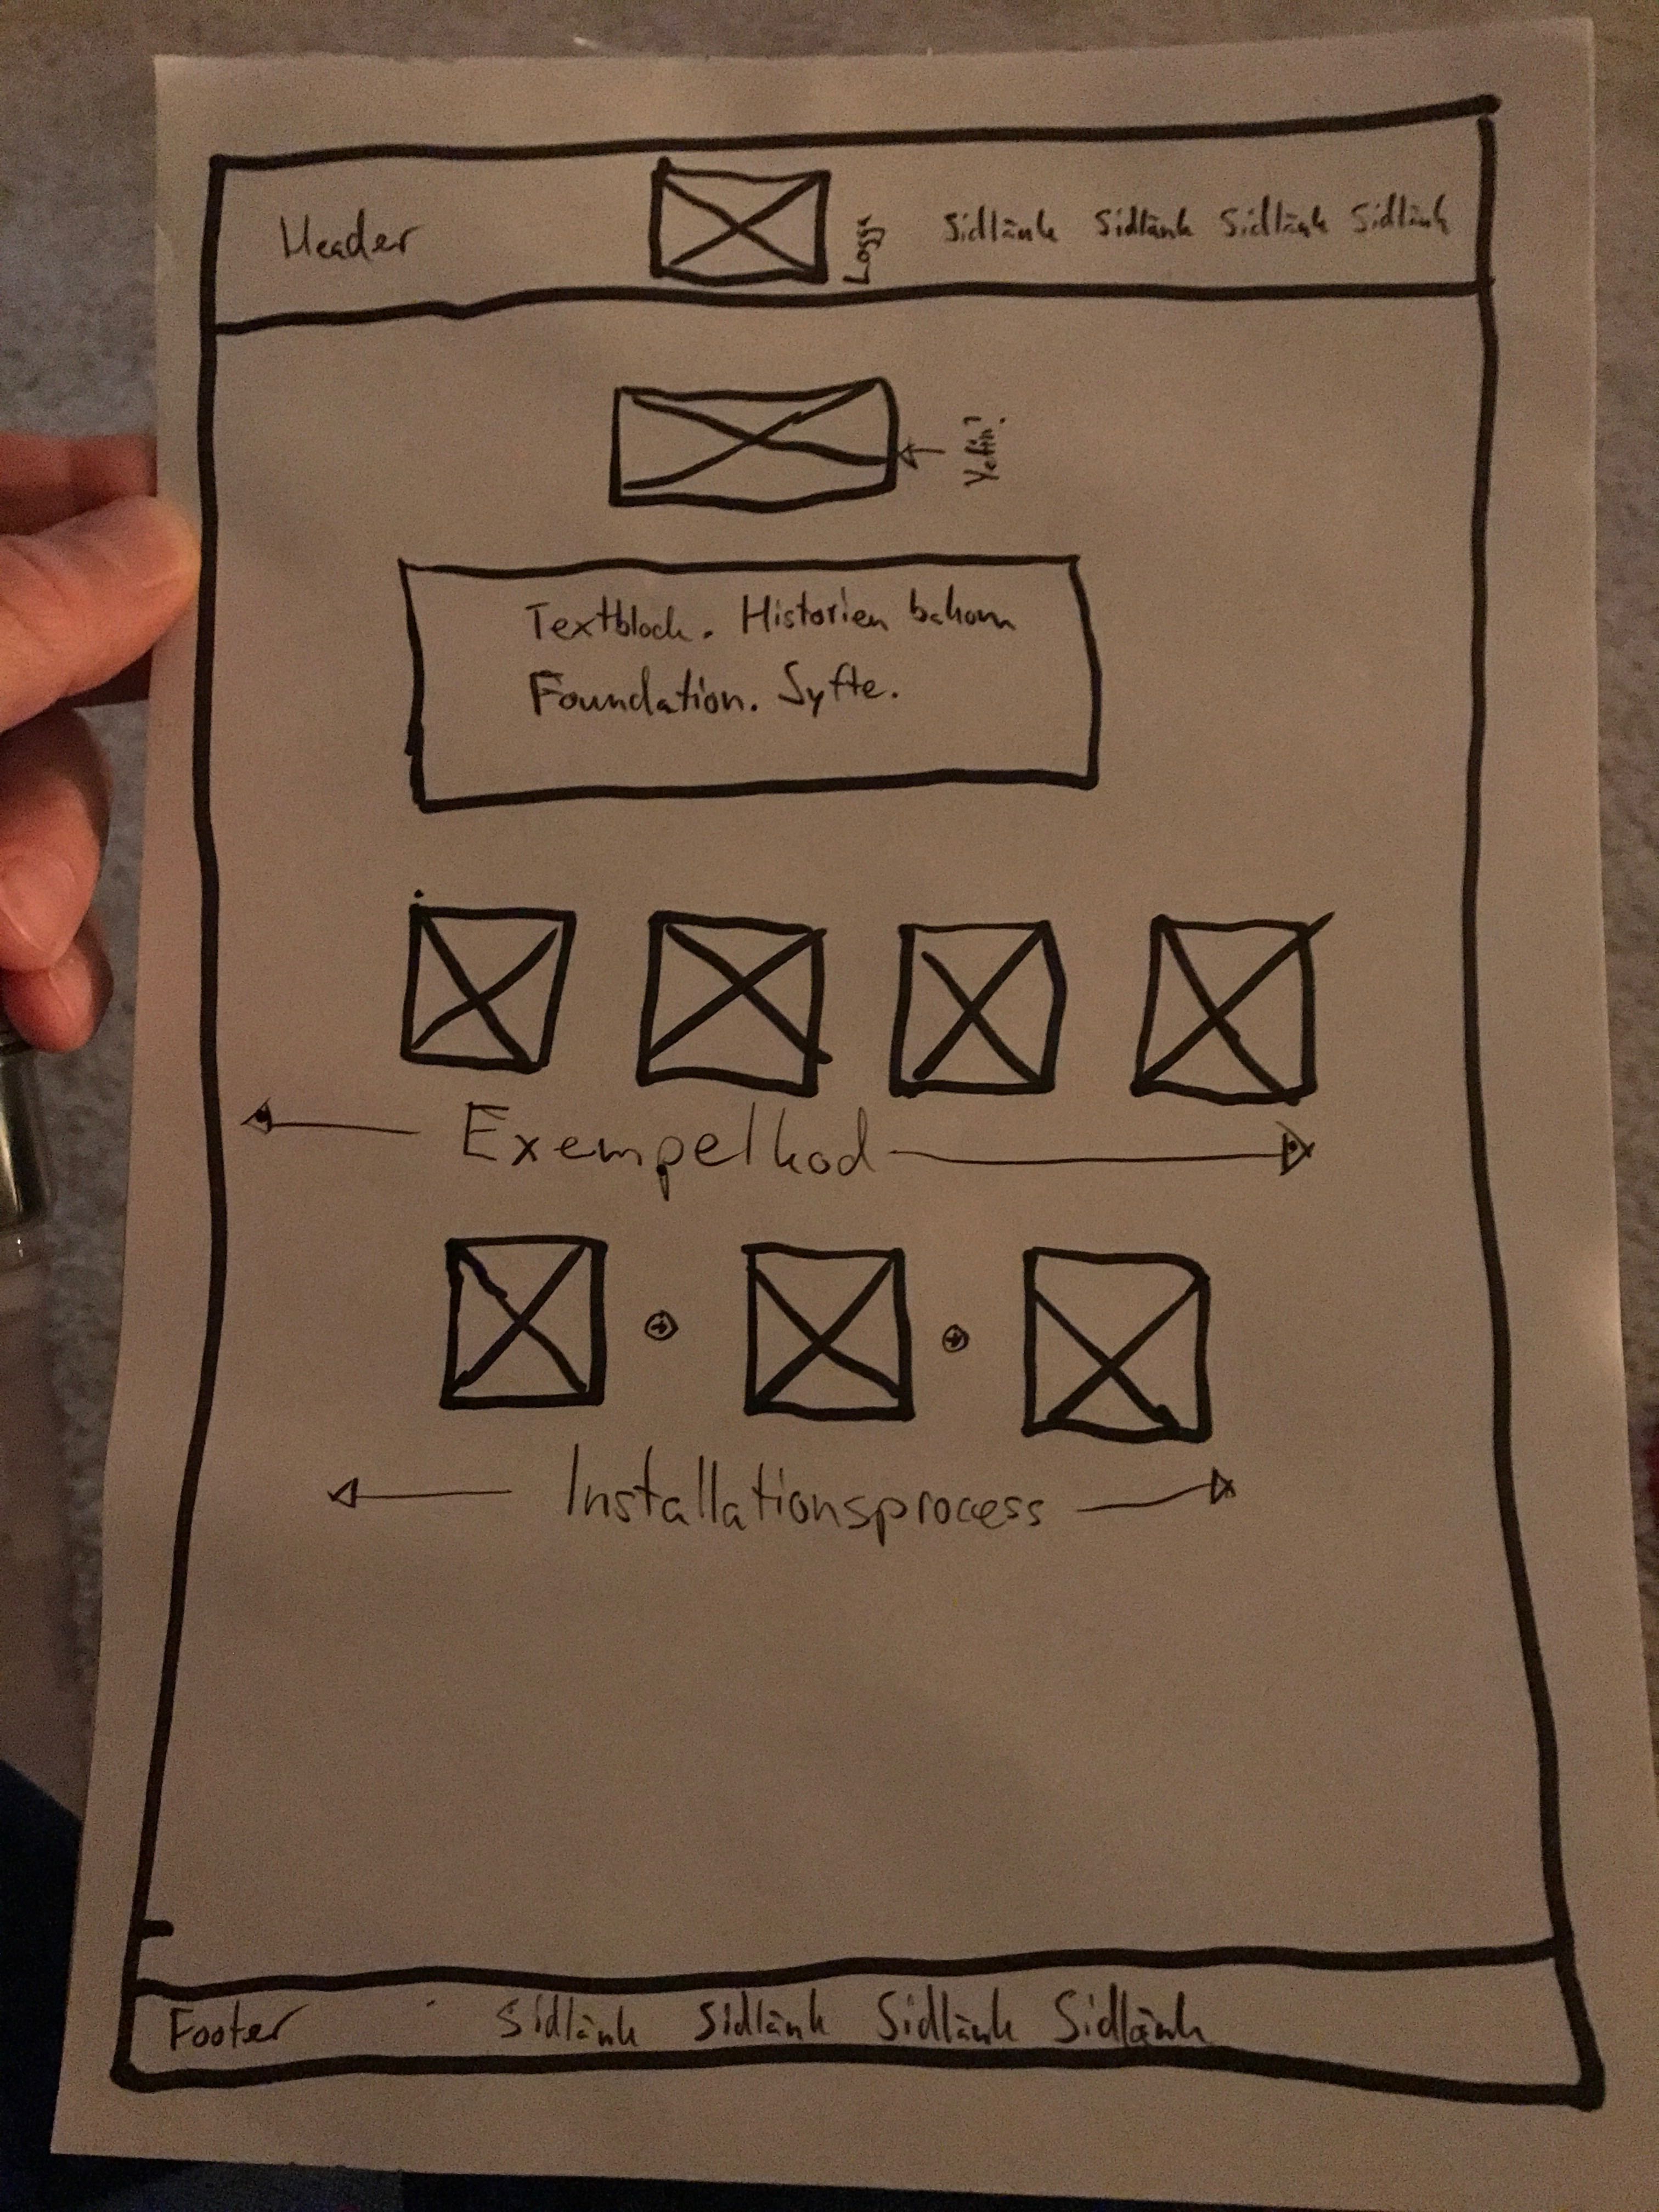 Header
Logga
Sidlänk Sidlänk Sidlänk Sidlänk
Yetin?
Textblock. Historien bakom
Foundation. Syfte.
Exempelkod
Installationsprocess
Footer
Sidlänk Sidlänk Sidlänk Sidlänk